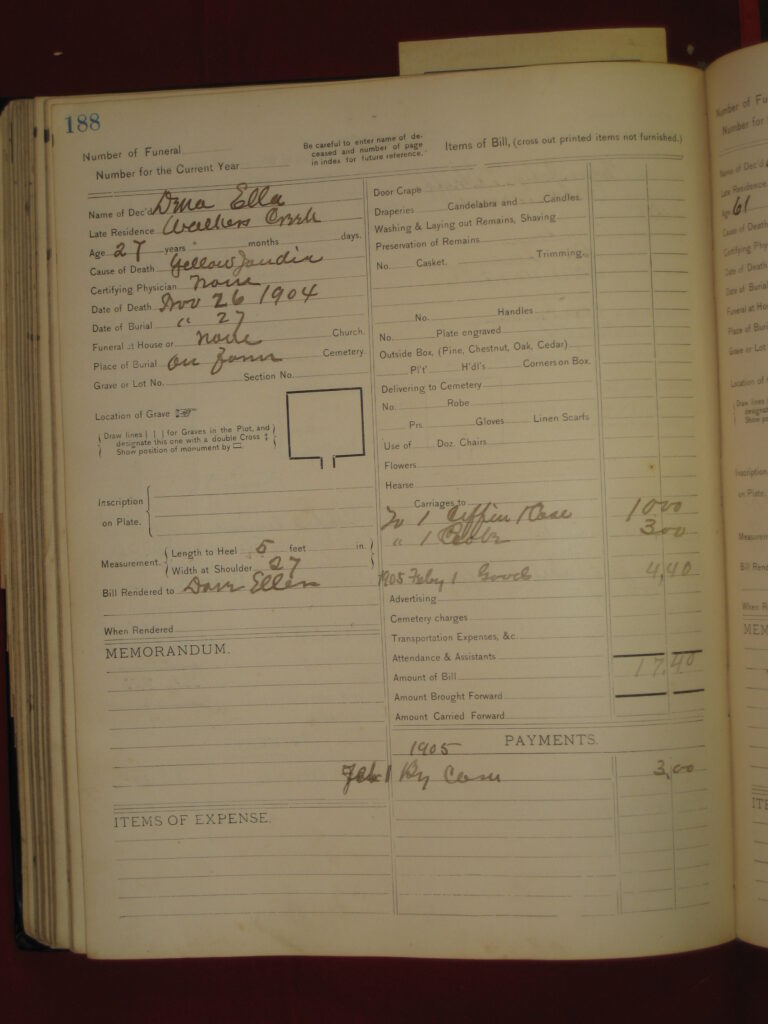 188
Number of Funeral
Number for the Current Year
Be careful to enter name of de-
ceased and number of page
in index for future reference.
Name of Dec'd Dma Ella
Late Residence Walkers Creek
Age 27 years months days.
Cause of Death Yellow Jaundis
Certifying Physician None
Date of Death Nov 26 1904
Date of Burial " 27
Funeral at House or None Church.
Place of Burial On farm Cemetery.
Grave or Lot No. Section No.
Location of Grave ☞
Draw lines | | | for Graves in the Plot, and
designate this one with a double Cross ‡
Show position of monument by ▭
Inscription
on Plate.
Measurement. Length to Heel 5 feet in.
Width at Shoulder 27
Bill Rendered to Dave Ellen
When Rendered
MEMORANDUM.
ITEMS OF EXPENSE.
Items of Bill, (cross out printed items not furnished.)
Door Crape
Draperies Candelabra and Candles.
Washing & Laying out Remains, Shaving
Preservation of Remains
No. Casket. Trimming
No. Handles
No. Plate engraved
Outside Box, (Pine, Chestnut, Oak, Cedar)
Pl't' H'dl's Corners on Box.
Delivering to Cemetery
No. Robe
Prs. Gloves Linen Scarfs
Use of Doz. Chairs
Flowers
Hearse
Carriages to
To 1 Coffin & Case 10 00
" 1 Robe 3 00
1905 Feby 1 Goods 4,40
Advertising
Cemetery charges
Transportation Expenses, &c.
Attendance & Assistants
Amount of Bill 17.40
Amount Brought Forward
Amount Carried Forward
PAYMENTS.
1905
Feb 1 By Cash 3,00
Number of Fu
Number for
Name of Dec'd
Late Residence
Age 61
Cause of Death
Certifying Phy
Date of Death
Date of Burial
Funeral at Ho
Place of Buria
Grave or Lot
Location of
Draw lines
designat
Show p
Inscription
on Plate.
Measuremen
Bill Rende
When R
MEM
ITE